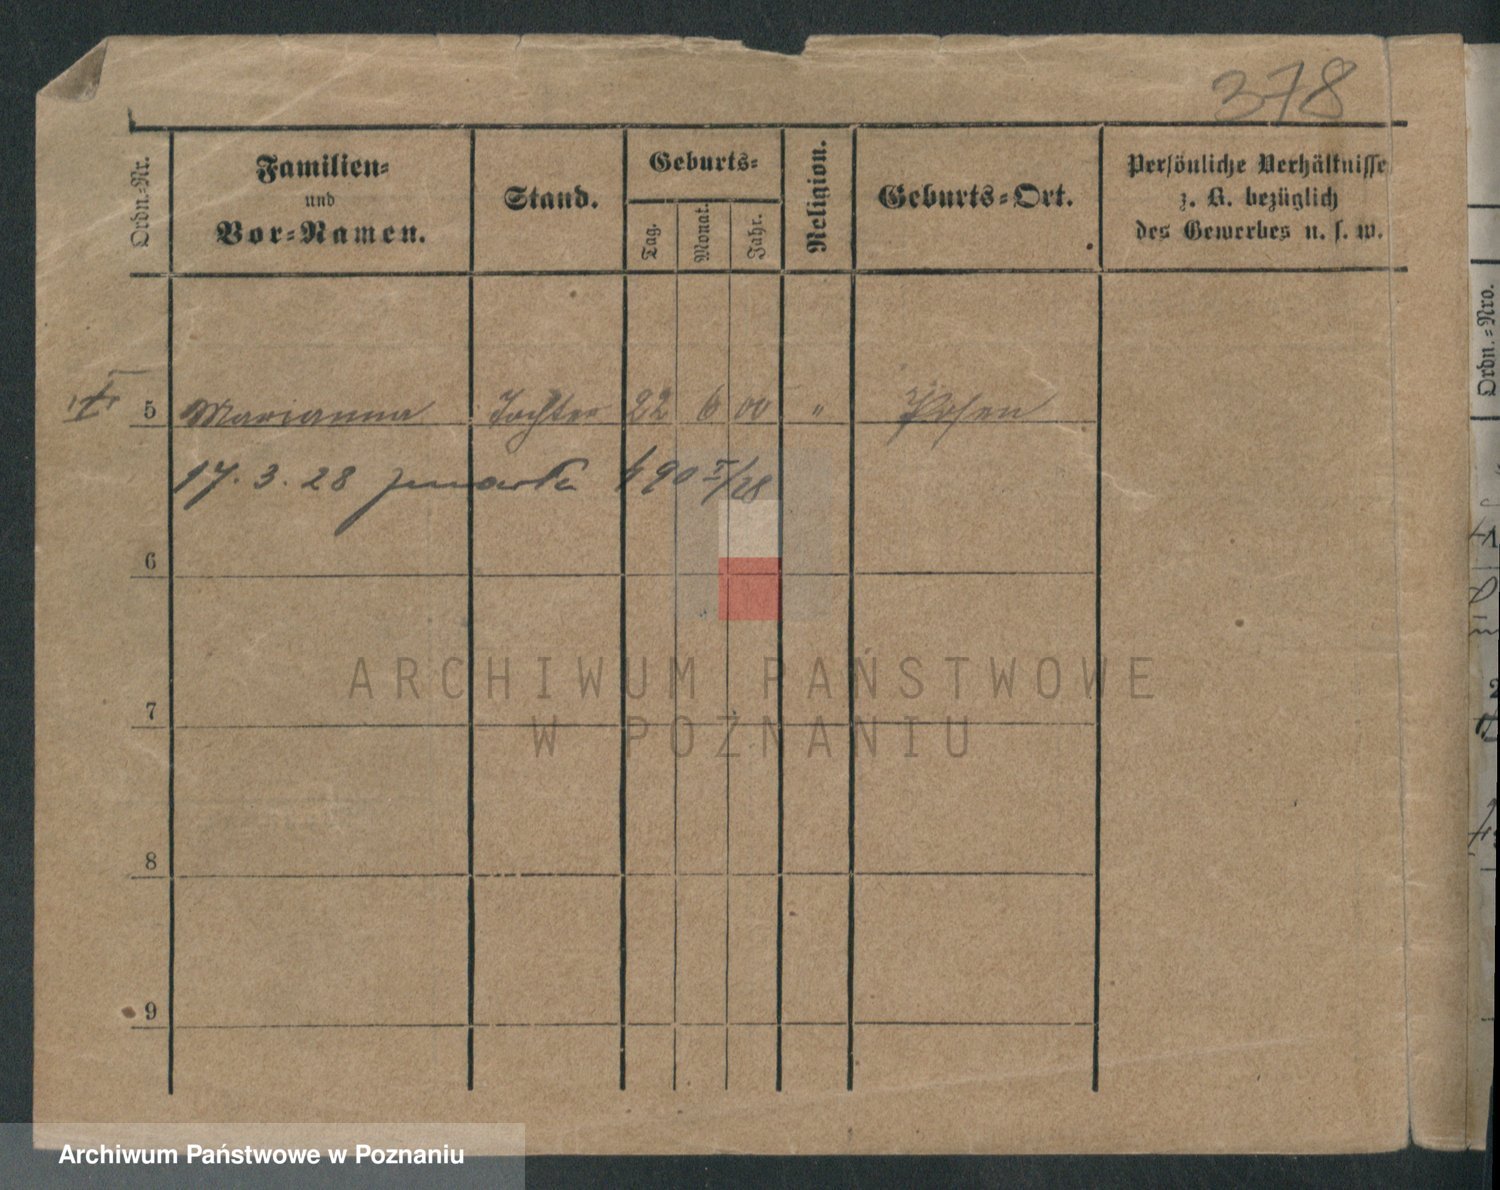 378
Ordn.-Nr.
Familien-
und
Vor-Namen.
Stand.
Geburts-
Tag.
Monat.
Jahr.
Religion.
Geburts-Ort.
Persönliche Verhältnisse
z. B. bezüglich
des Gewerbes u. s. w.
5 Marianna Tochter 22 6 00 " Posen
17. 3. 28 zmarła 490 I/28
6
7
8
9
Ordn.-Nro.
ARCHIWUM PAŃSTWOWE
W POZNANIU
Archiwum Państwowe w Poznaniu